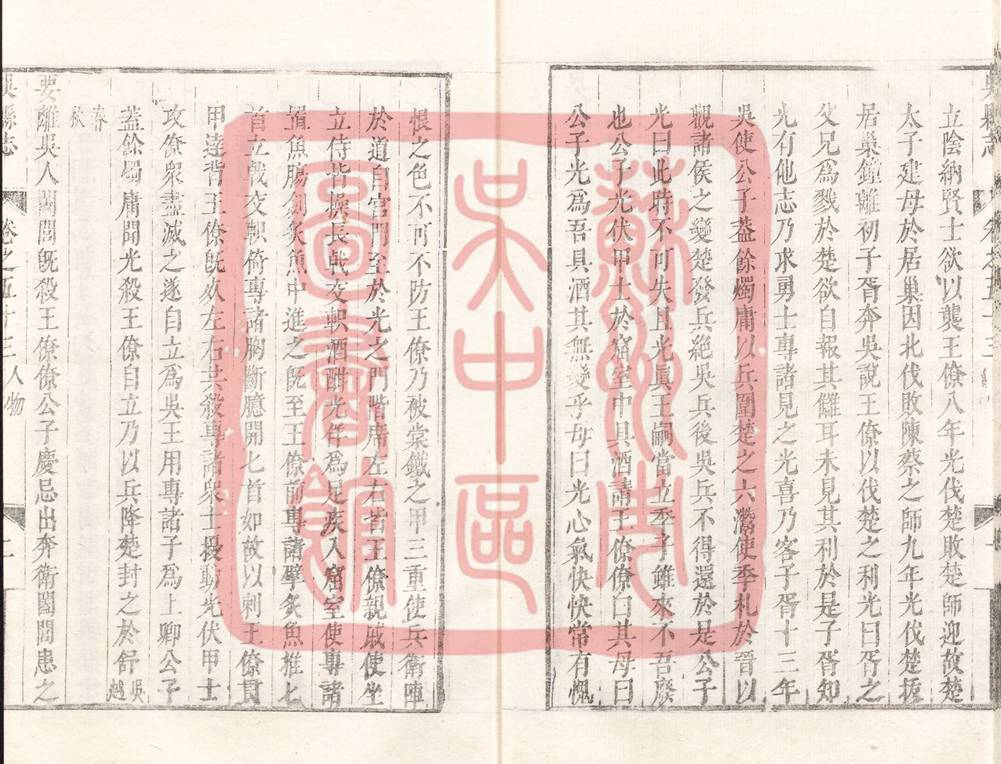 吳縣志
立陰納賢士欲以襲王僚八年光伐楚敗楚師迎故楚
太子建母於居巢因北伐敗陳蔡之師九年光伐楚拔
居巢鐘離初子胥奔吳說王僚以伐楚之利光曰胥之
父兄為戮於楚欲自報其讎耳未見其利於是子胥知
光有他志乃求勇士專諸見之光喜乃客子胥十三年
吳使公子蓋餘燭庸以兵圍楚之六灊使季札於晉以
觀諸侯之變楚發兵絕吳兵後吳兵不得還於是公子
光曰此時不可失且光眞王嗣當立季子雖來不吾廢
也公子光伏甲士於窟室中具酒請王僚僚曰其母曰
公子光爲吾具酒其無變乎母曰光心氣怏怏常有愧
恨之色不可不防王僚乃被棠鐵之甲三重使兵衛陣
於道自宮門至於光之門階席左右皆王僚親戚使坐
立侍皆操長戟交軹酒酣光佯爲足疾入窟室使專諸
置魚腸劍炙魚中進之旣至王僚前專諸擘炙魚推匕
首立戟交軹倚專諸胸斷臆開匕首如故以刺王僚貫
甲達背王僚旣死左右共殺專諸衆士擾動光伏甲士
攻僚衆盡滅之遂自立爲吳王用專諸子爲上卿公子
蓋餘燭庸聞光殺王僚自立乃以兵降楚封之於舒吳越
春秋
要離吳人闔閭旣殺王僚僚公子慶忌出奔衛闔閭患之
吳縣志
卷之五十三 人物
二
蘇州市
吳中區
圖書館